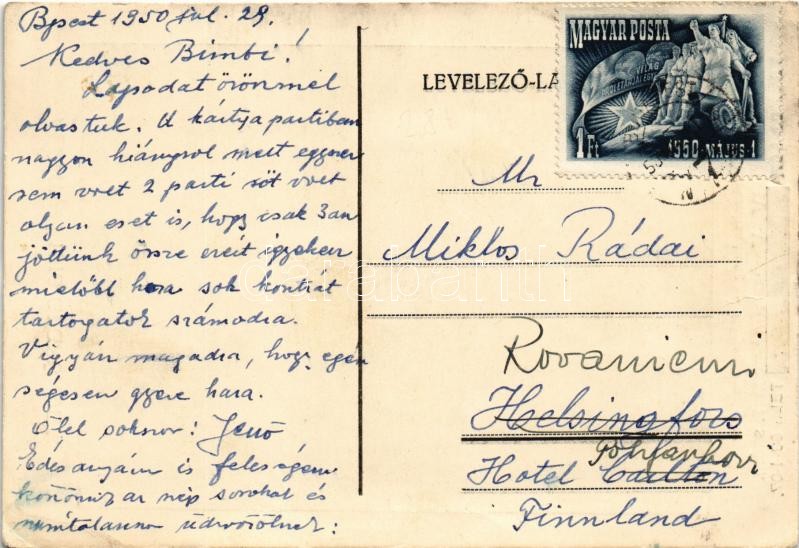 Bpest 1950 jul. 29.
Kedves Bimbi!
Lapodat örömmel
olvastuk. A kártya partiban
nagyon hiányzol mert egyszer
sem volt 2 parti sőt volt
olyan eset is, hogy csak 3an
jöttünk össze
mielőbb haza sok kontrát
tartogatok számodra.
Vigyázz magadra, hogy egés
ségesen gyere haza.
Ölel sokszor: Jenő
Édesanyám is feleségem
köszönik az sorokat és
üdvözölnek:
LEVELEZŐ-LA
MAGYAR POSTA
VILÁG
1 Ft 1950 MÁJUS 1
Mr
Miklos Rádai
Rovaniemi
Helsingfors
Pohjanhovi
Hotel Carlton
Finnland
darabanth